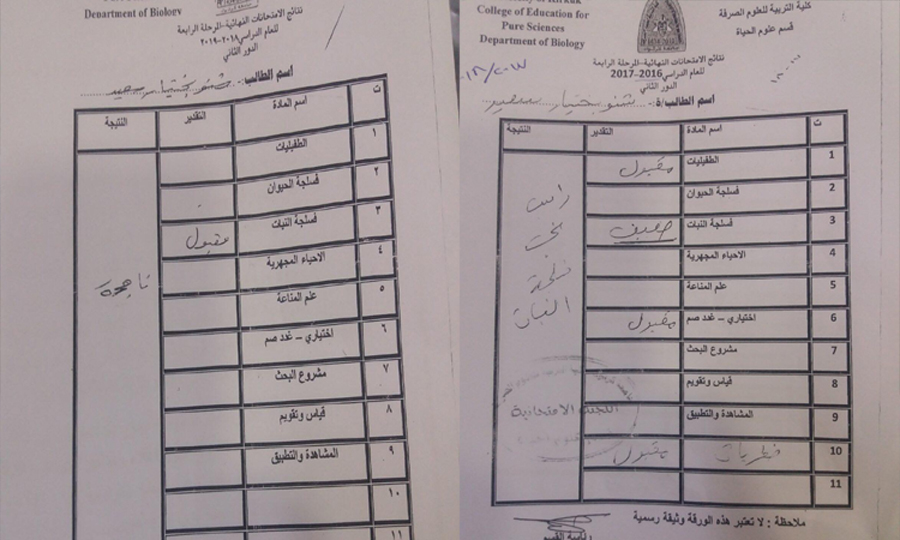 Department of Biology
نتائج الامتحانات النهائية-المرحلة الرابعة
للعام الدراسي ٢٠١٨-٢٠١٩
الدور الثاني
اسم الطالب:
ت
اسم المادة
التقدير
النتيجة
١
الطفيليات
٢
فسلجة الحيوان
٣
فسلجة النبات
مقبول
٤
الاحياء المجهرية
٥
علم المناعة
٦
اختياري – غدد صم
٧
مشروع البحث
٨
قياس وتقويم
٩
المشاهدة والتطبيق
١٠
١١
ناجحة
College of Education for
Pure Sciences
Department of Biology
كلية التربية للعلوم الصرفة
قسم علوم الحياة
نتائج الامتحانات النهائية-المرحلة الرابعة
للعام الدراسي 2016-2017
الدور الثاني
اسم الطالب/ة:
ت
اسم المادة
التقدير
النتيجة
1
الطفيليات
مقبول
2
فسلجة الحيوان
3
فسلجة النبات
ضعيف
4
الاحياء المجهرية
5
علم المناعة
6
اختياري – غدد صم
مقبول
7
مشروع البحث
8
قياس وتقويم
9
المشاهدة والتطبيق
10
فطريات
مقبول
11
النبات
اللجنة الامتحانية
ملاحظة : لا تعتبر هذه الورقة وثيقة رسمية
رئاسة القسم